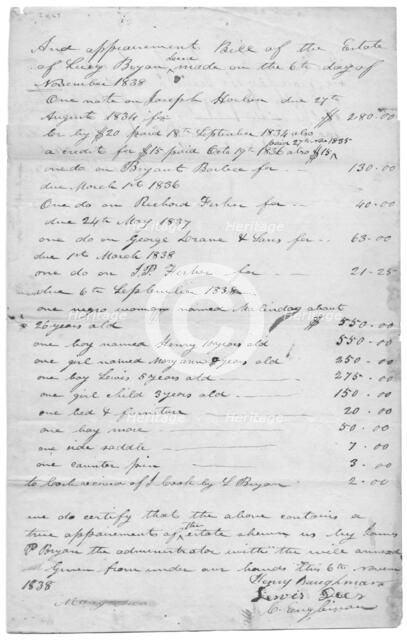 And appraisement Bill of the Estate
of Lucy Bryan Decd made on the 6th day of
November 1838
One note on Joseph due 27th
August 1834 for $ 280.00
Cr by $20 paid 18th September 1834 also
paid 27th 1835
a credit for $15 paid Octo 19th 1836 also $15
one do on Bryant for 130.00
due March 1st 1836
One do on Richard Fisher for 40.00
due 24th May 1837
one do on George & for 63.00
due 1st March 1838
one do on Fisher for 21.25
due 6th September 1838
one negro woman named Malinda about
20 years old $ 550.00
one boy named Henry 10 years old 550.00
one girl named Mary ann 8 years old 350.00
one boy Lewis 5 years old 275.00
one girl child 3 years old 150.00
one bed & furniture 20.00
one bay mare 50.00
one side saddle 7.00
one counter pin 3.00
to Cash of J Cook by L Bryan 2.00
we do certify that the above contains a
true appraisement of the estate shewn us by James
P Bryan the administrator with the will annexed
Given from under our hands this 6th
1838
Henry Baughman
Lewis
C. Engleman